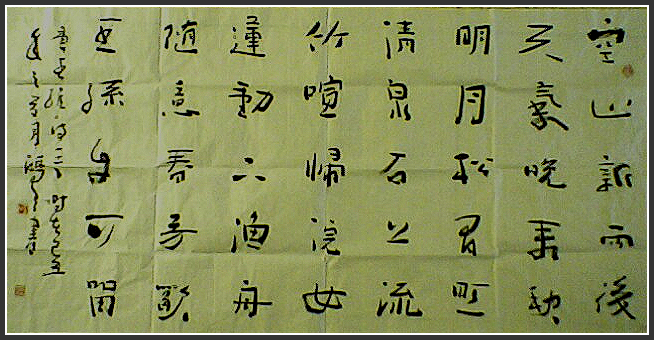 空山新雨後
天氣晚来秋
明月松間照
清泉石上流
竹喧歸浣女
蓮動下漁舟
随意春芳歇
王孫自可留
王維詩一首時在
年之月書